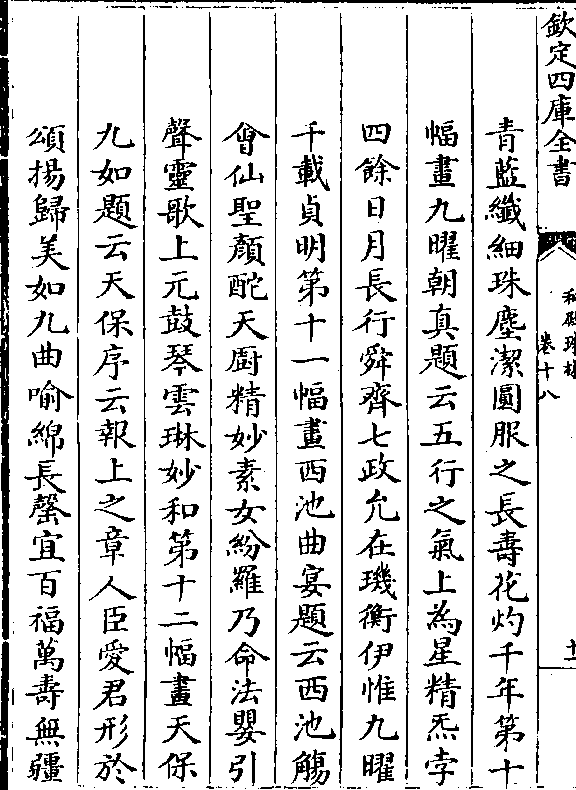 欽定四庫全書
卷十八
青藍纖細珠塵潔圓服之長壽花灼千年第十
幅畫九曜朝真題云五行之氣上為星精炁孛
四餘日月長行舜齊七政允在璣衡伊惟九曜
千載貞明第十一幅畫西池曲宴題云西池觴
會仙聖顏酡天厨精妙素女紛羅乃命法嬰引
聲靈歌上元鼓琴雲琳妙和第十二幅畫天保
九如題云天保序云報上之章人臣愛君形於
頌揚歸美如九曲喻綿長罄宜百福萬壽無疆